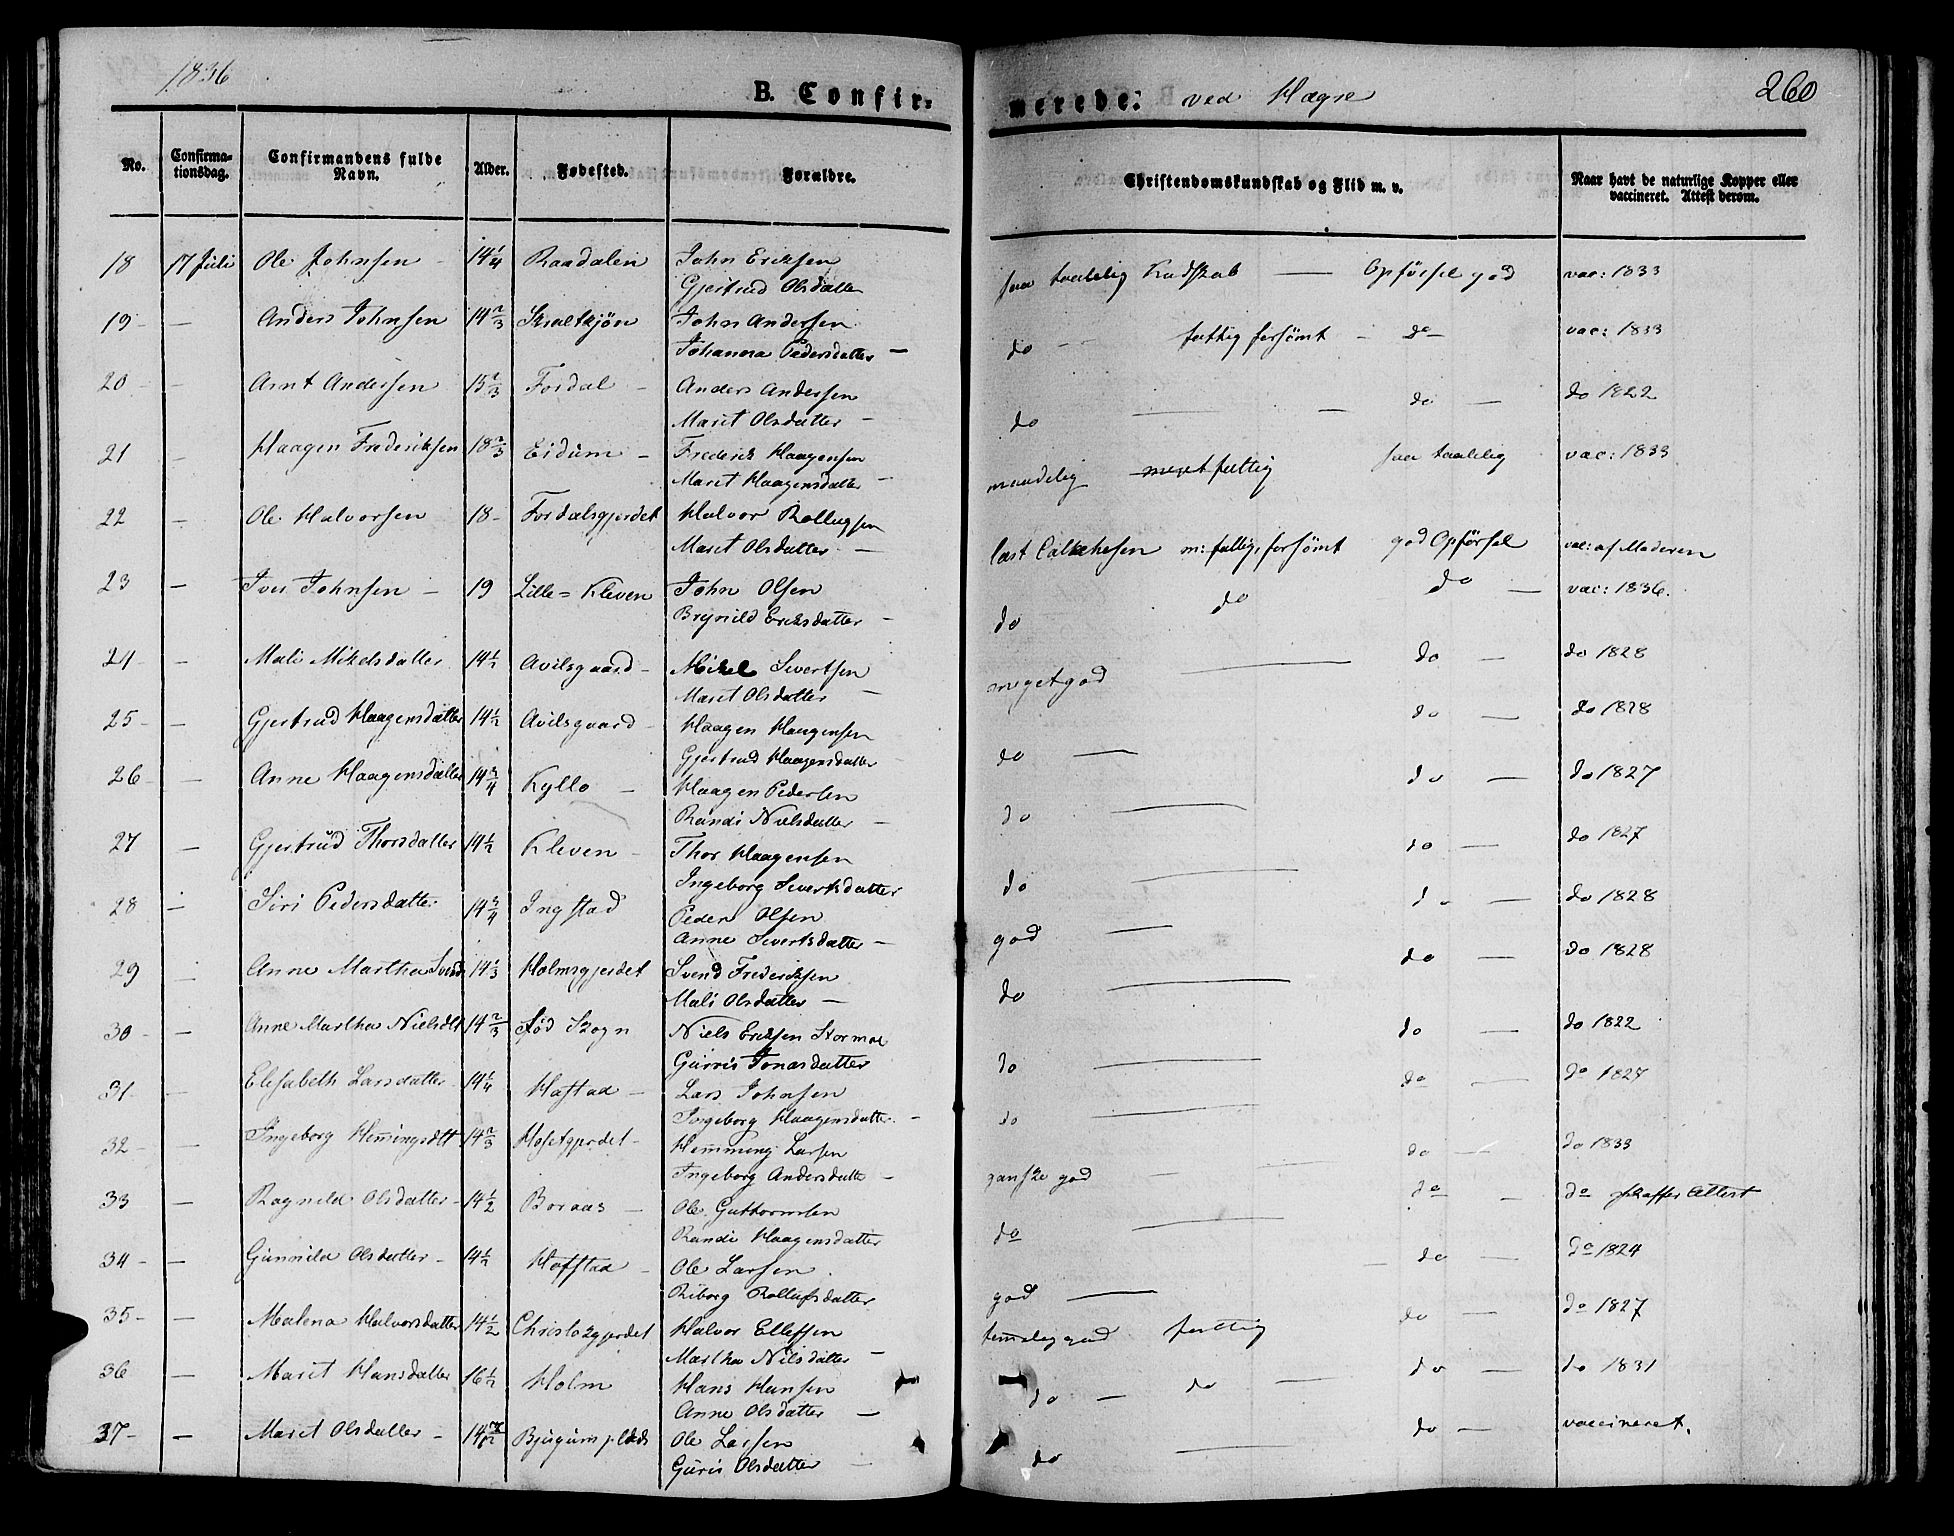 1836
B. Confirmerede. ved Hegre
260
No. Confirmationsdag. Confirmandens fulde Navn. Alder. Fødested. Forældre. Christendomskundskab og Flid m. v. Naar havt de naturlige Kopper eller vaccineret. Attest derom.
18 17 Juli Ole Johnsen - 14 1/4 Raadalen John Eriksen saa taalelig Kudskab — Opførsel god vac: 1833
Gjertrud Olsdatter
19 - — Anders Johnsen 14 2/3 John Andersen do - - fattig forsømt - do - vac: 1833
Johanna Pedersdatter —
20 - - Arnt Andersen 15 2/3 Fordal - Anders Andersen do — — do — do 1822
Marit Olsdatter —
21 - Haagen Frederiksen 18 2/3 Eidum - Frederik Haagensen maadelig meget fattig saa taalelig vac: 1833
Marit Haagensdatter -
22 - Ole Halvorsen 18 - Fordalsgjerdet Halvor Rollugsen læst m: fattig, forsømt god Opførsel vac: af Moderen
Marit Olsdatter —
23 — Iver Johnsen - 19 Lille= Kleven John Olsen do do do — vac: 1836.
Brynild Eriksdatter -
24 - - Mali Mikelsdatter 14 1/2 Avilsgaard - Mikel Sivertsen meget god — do — do 1828
Marit Olsdatter —
25 - - Gjertrud Haagensdatter 14 1/2 Avilsgaard - Haagen Haagensen do — do — do 1828
Gjertrud Haagensdatter -
26 - - Anne Haagensdatter 14 3/4 Kyllo - Haagen Pedersen do — do — do 1827
Randi Nielsdatter -
27 — Gjertrud Thorsdatter 14 1/2 Kleven - Thor Haagensen do — do — do 1827
Ingeborg Sivertsdatter
28 - Siri Pedersdatter 14 3/4 Ingstad Peder Olsen god — do — do 1828
Anne Sivertsdatter —
29 - Anne Martha Svend 14 1/3 Holmsgjerdet Svend Frederiksen do — do — do 1828
Mali Olsdatter —
30 - - Anne Martha Nielsdt 14 2/3 Niels Eriksen do — do — do 1822
Gurris Jonasdatter
31 - - Elisabeth Larsdatter 14 1/4 Hofstad - Lars Johnsen do — do — do 1827
Ingeborg Haagensdatter -
32 - - Ingeborg Hemingsdtt 14 2/3 Hosetgjerdet - Hemming Larsen ganske god — do — do 1833
Ingeborg Andersdatte -
33 - Ragnild Olsdatter - 14 1/2 Boraas - Ole Guttormsen do — do — do skaffer Attest
Randi Haagensdatter
34 - - Gunnild Olsdatter - 14 1/2 Hofstad - Ole Larsen god — do — do 1824
Riborg Rollufsdatter
35 - - Malena Halvorsdatter 14 1/2 Halvor Ellefsen temelig god fattig do — do 1827
Martha Nilsdatter —
36 - Marit Hansdatter 16 1/2 Holm Hans Hansen do — do — do — do 1831
Anne Olsdatter —
37 - - Marit Olsdatter - Ole Larsen do — do — vaccineret.
Guris Olsdatter —